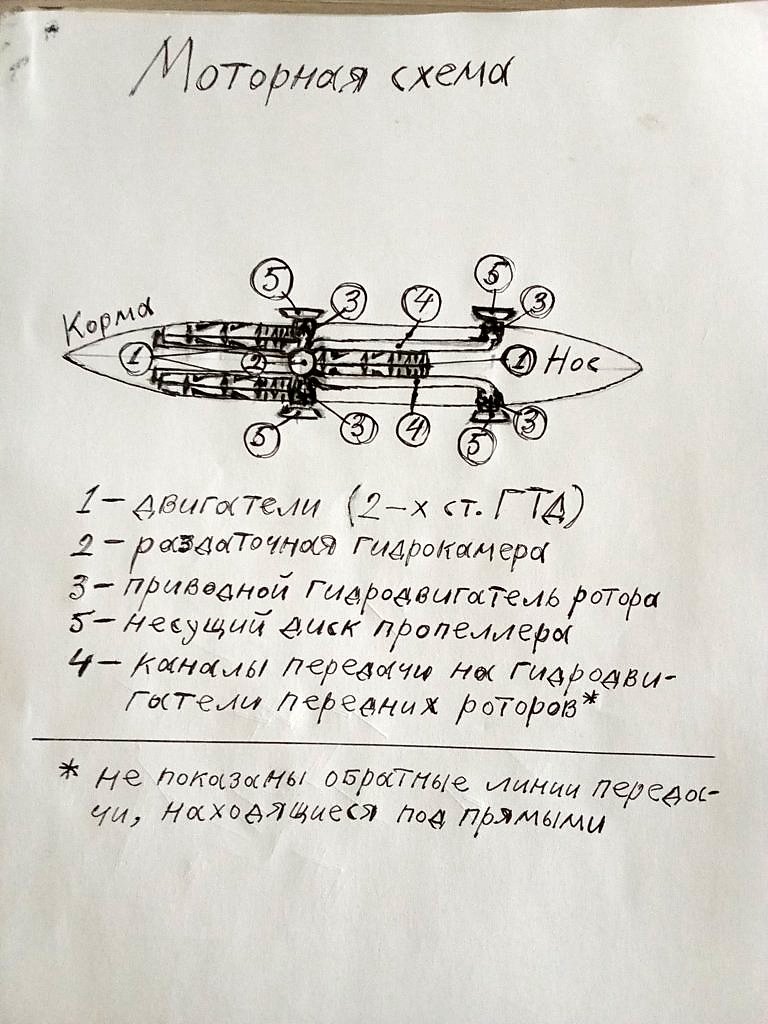 Моторная схема
5 5
3 4 3
Корма
1 2 1 Нос
5 3 4 5 3
1 – двигатели (2-х ст. ГТД)
2 – раздаточная гидрокамера
3 – приводной гидродвигатель ротора
5 – несущий диск пропеллера
4 – каналы передачи на гидродви-
гатели передних роторов*
* не показаны обратные линии переда-
чи, находящиеся под прямыми